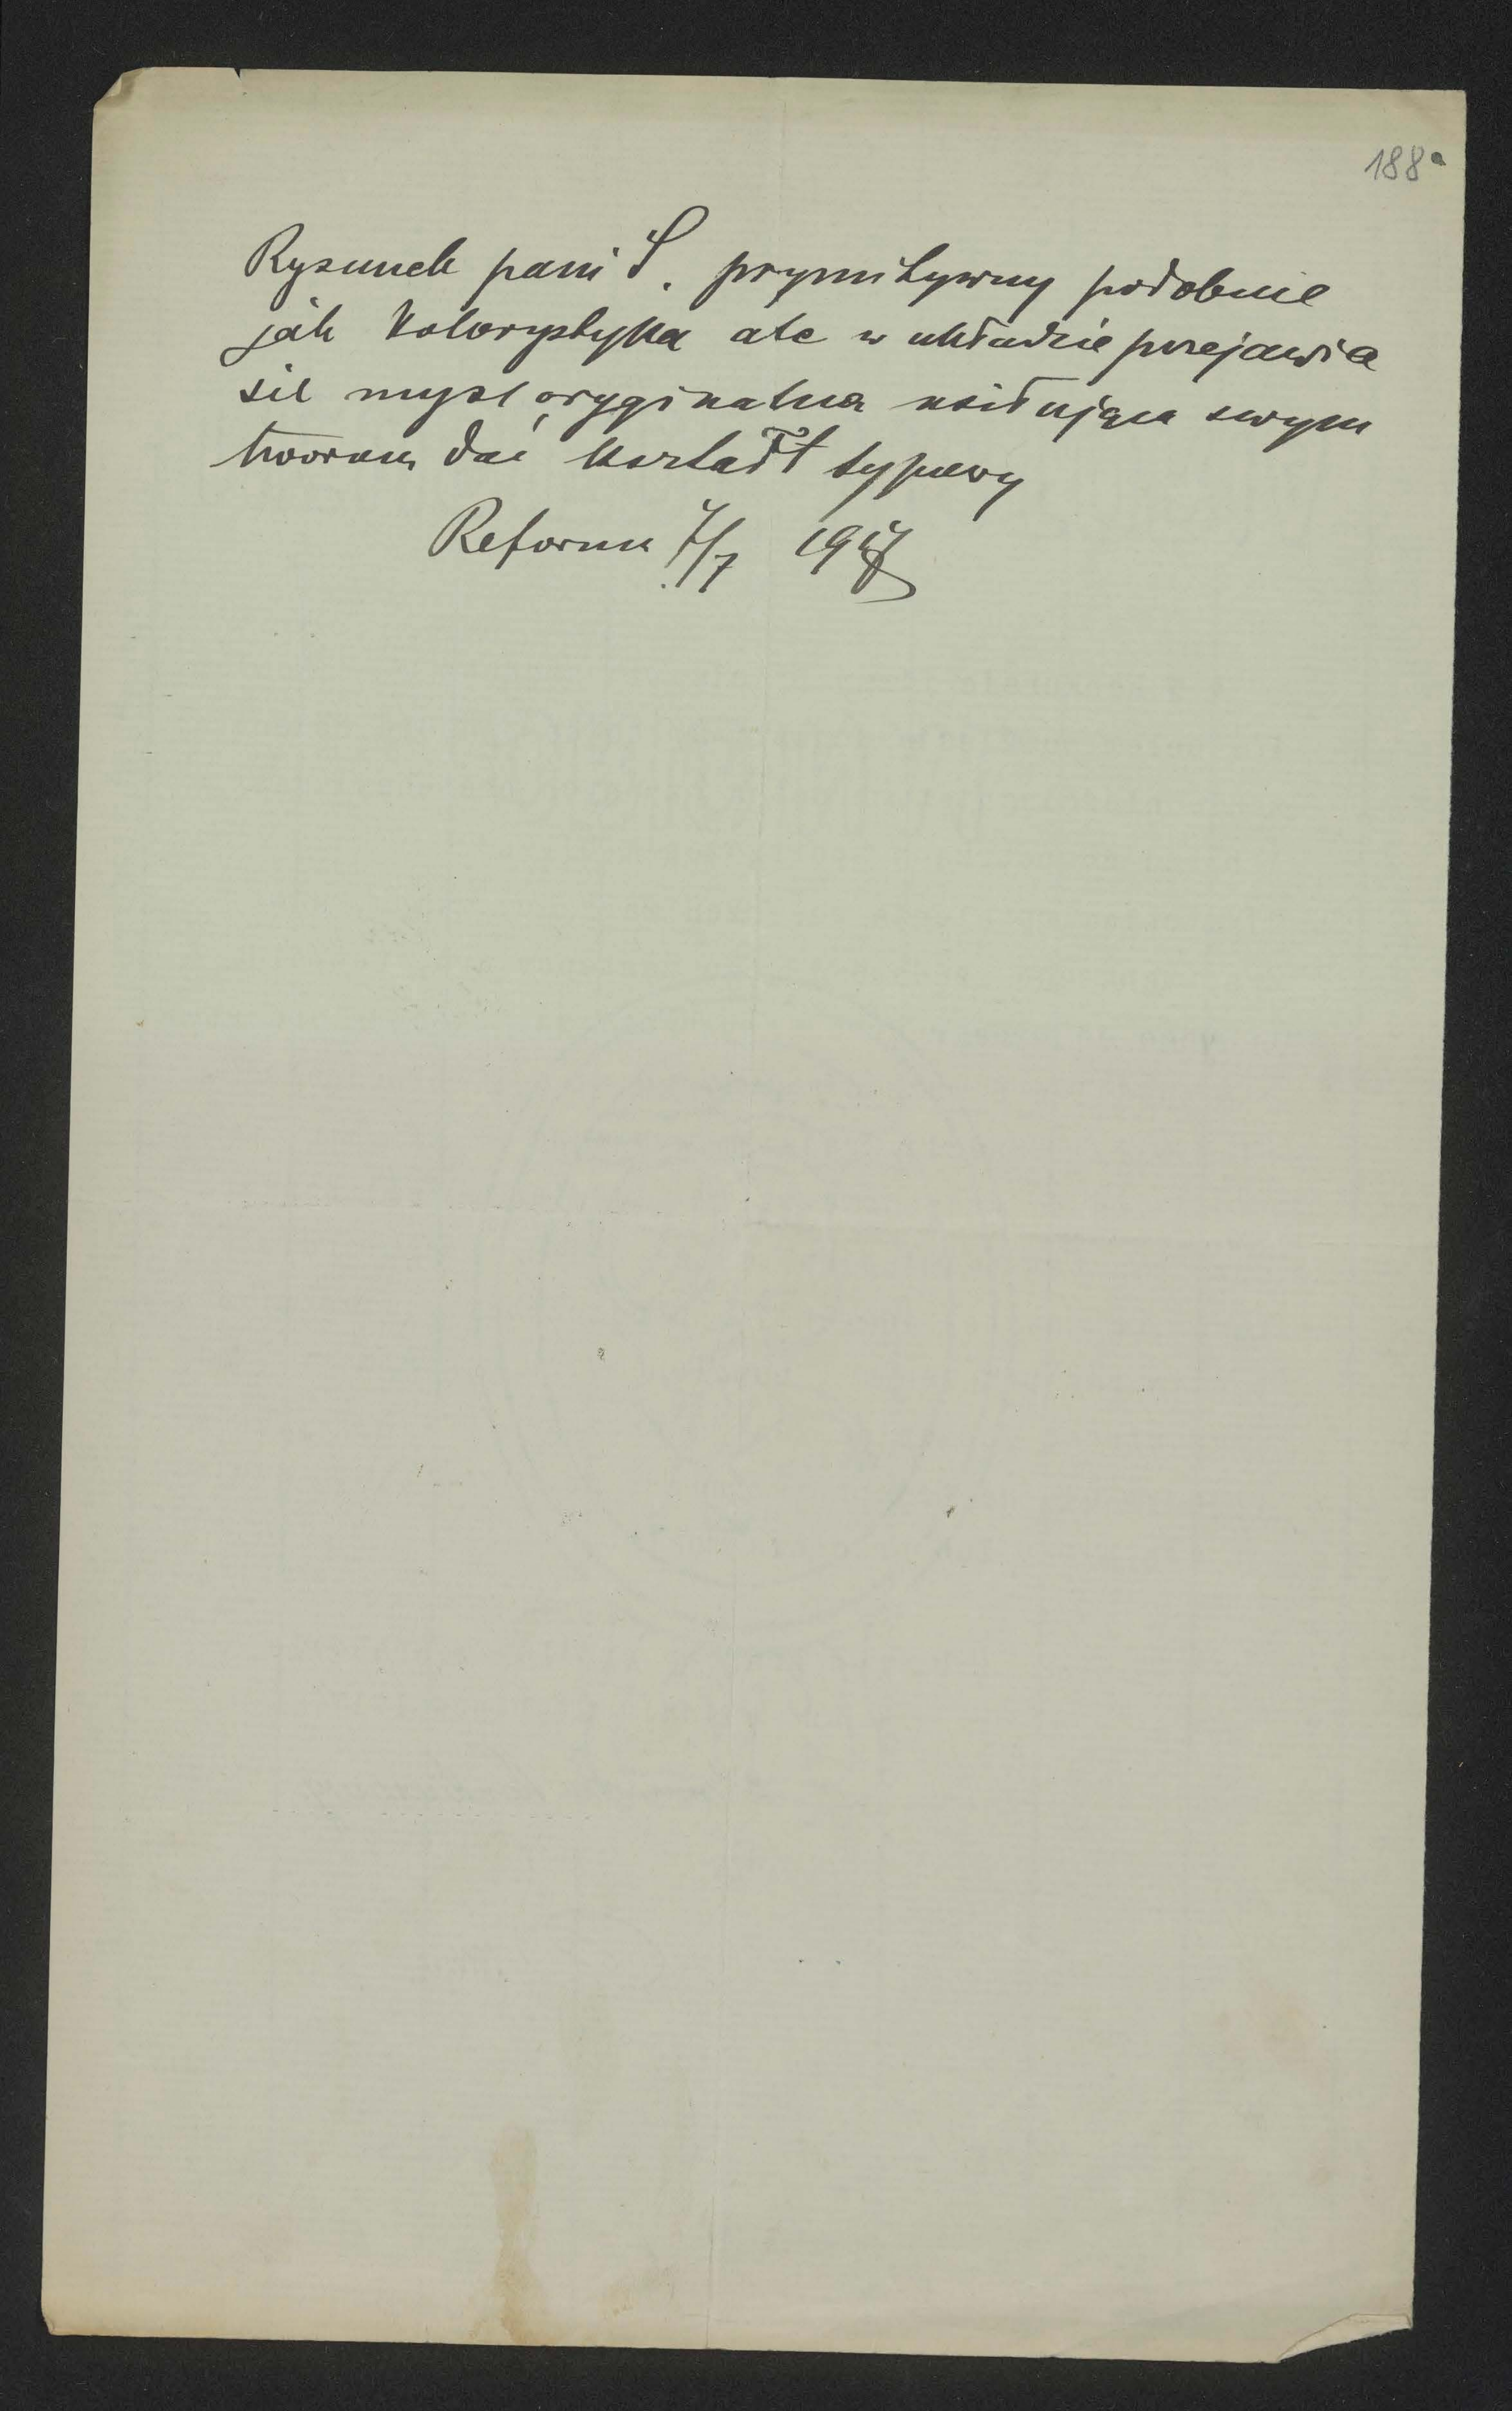 188a
Rysunek pani S. prymitywny podobnie
jak kolorystyka ale w układzie przejawia
się mysl oryginalna usiłująca swym
tworom dać kształt typowy
Reforma 7/7 1917